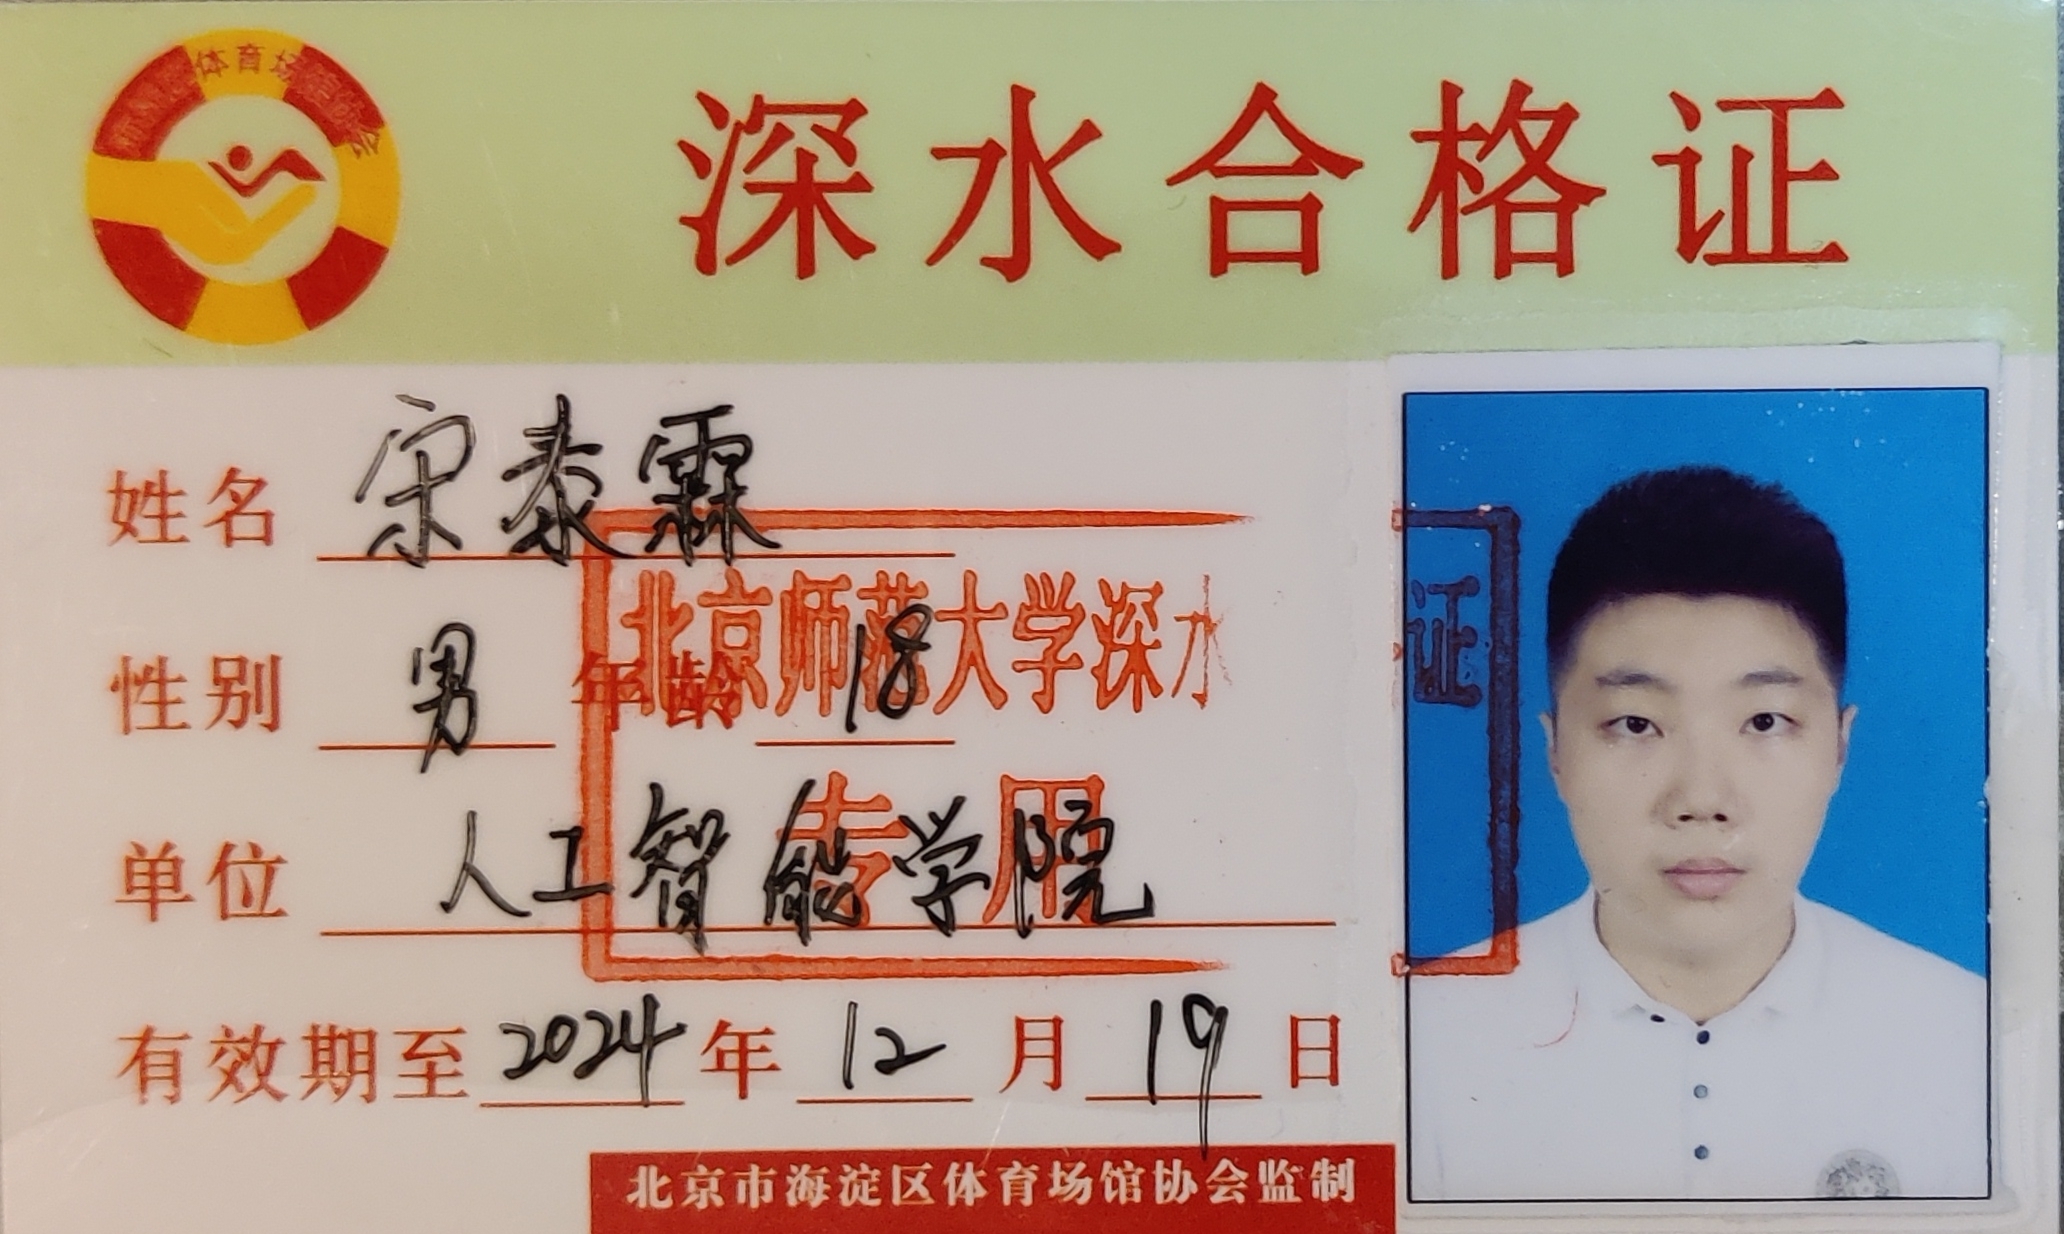 体育场馆协会
深水合格证
姓名 宋泰霖
北京师范大学深水 证
性别 男 年龄 18
专用
单位 人工智能学院
有效期至 2024 年 12 月 19 日
北京市海淀区体育场馆协会监制